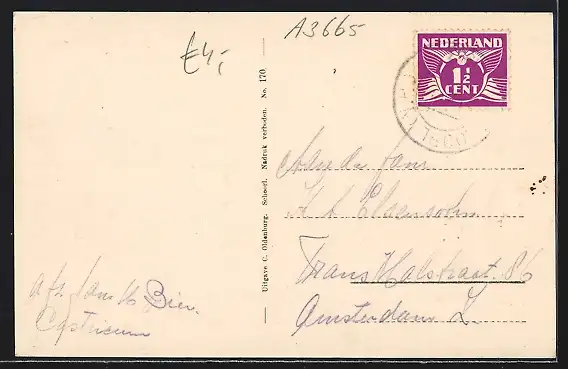 A3665
£4,-
NEDERLAND
1½
CENT
Uitgave C. Oldenburg. Schoorl. Nadruk verboden. No. 170
Aan de fam
Frans Halsstraat. 86
Amsterdam Z.
afz. fam
Castricum